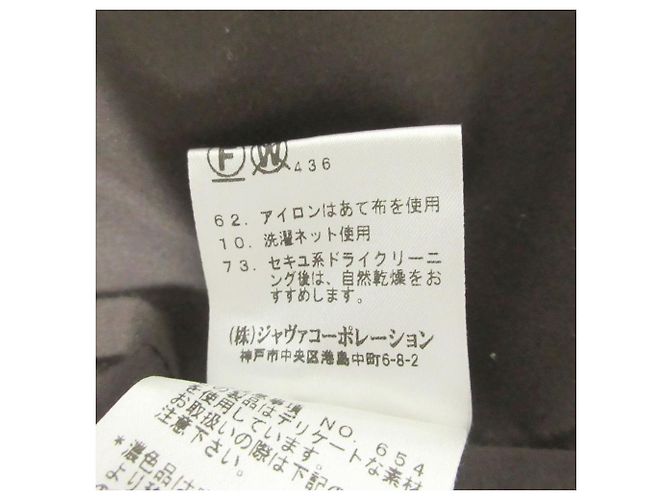 F W 436
62. アイロンはあて布を使用
10. 洗濯ネット使用
73. セキユ系ドライクリーニ
ング後は、自然乾燥をお
すすめします。
(株)ジャヴァコーポレーション
神戸市中央区港島中町6-8-2
意事項 NO. 654
の製品はデリケートな素材
を使用しています。
お取扱いの際は下記の
注意下さい。
*濃色品は
より